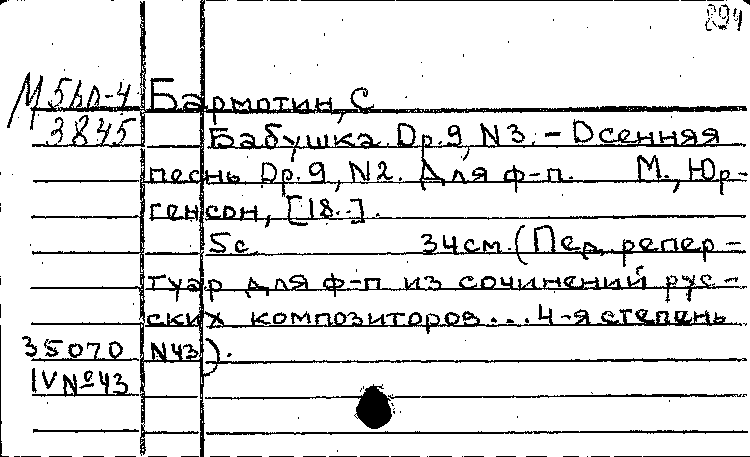 894
М 5hп-4 Бармотин, С
3845 Бабушка. Op.9, N3. - Осенняя
песнь Op.9, N2. Для ф-п. М., Юр-
генсон, [18..].
5с. 34см. (Пед. репер-
туар для ф-п из сочинений рус-
ских композиторов... 4-я степень
35070 N43).
IV №43